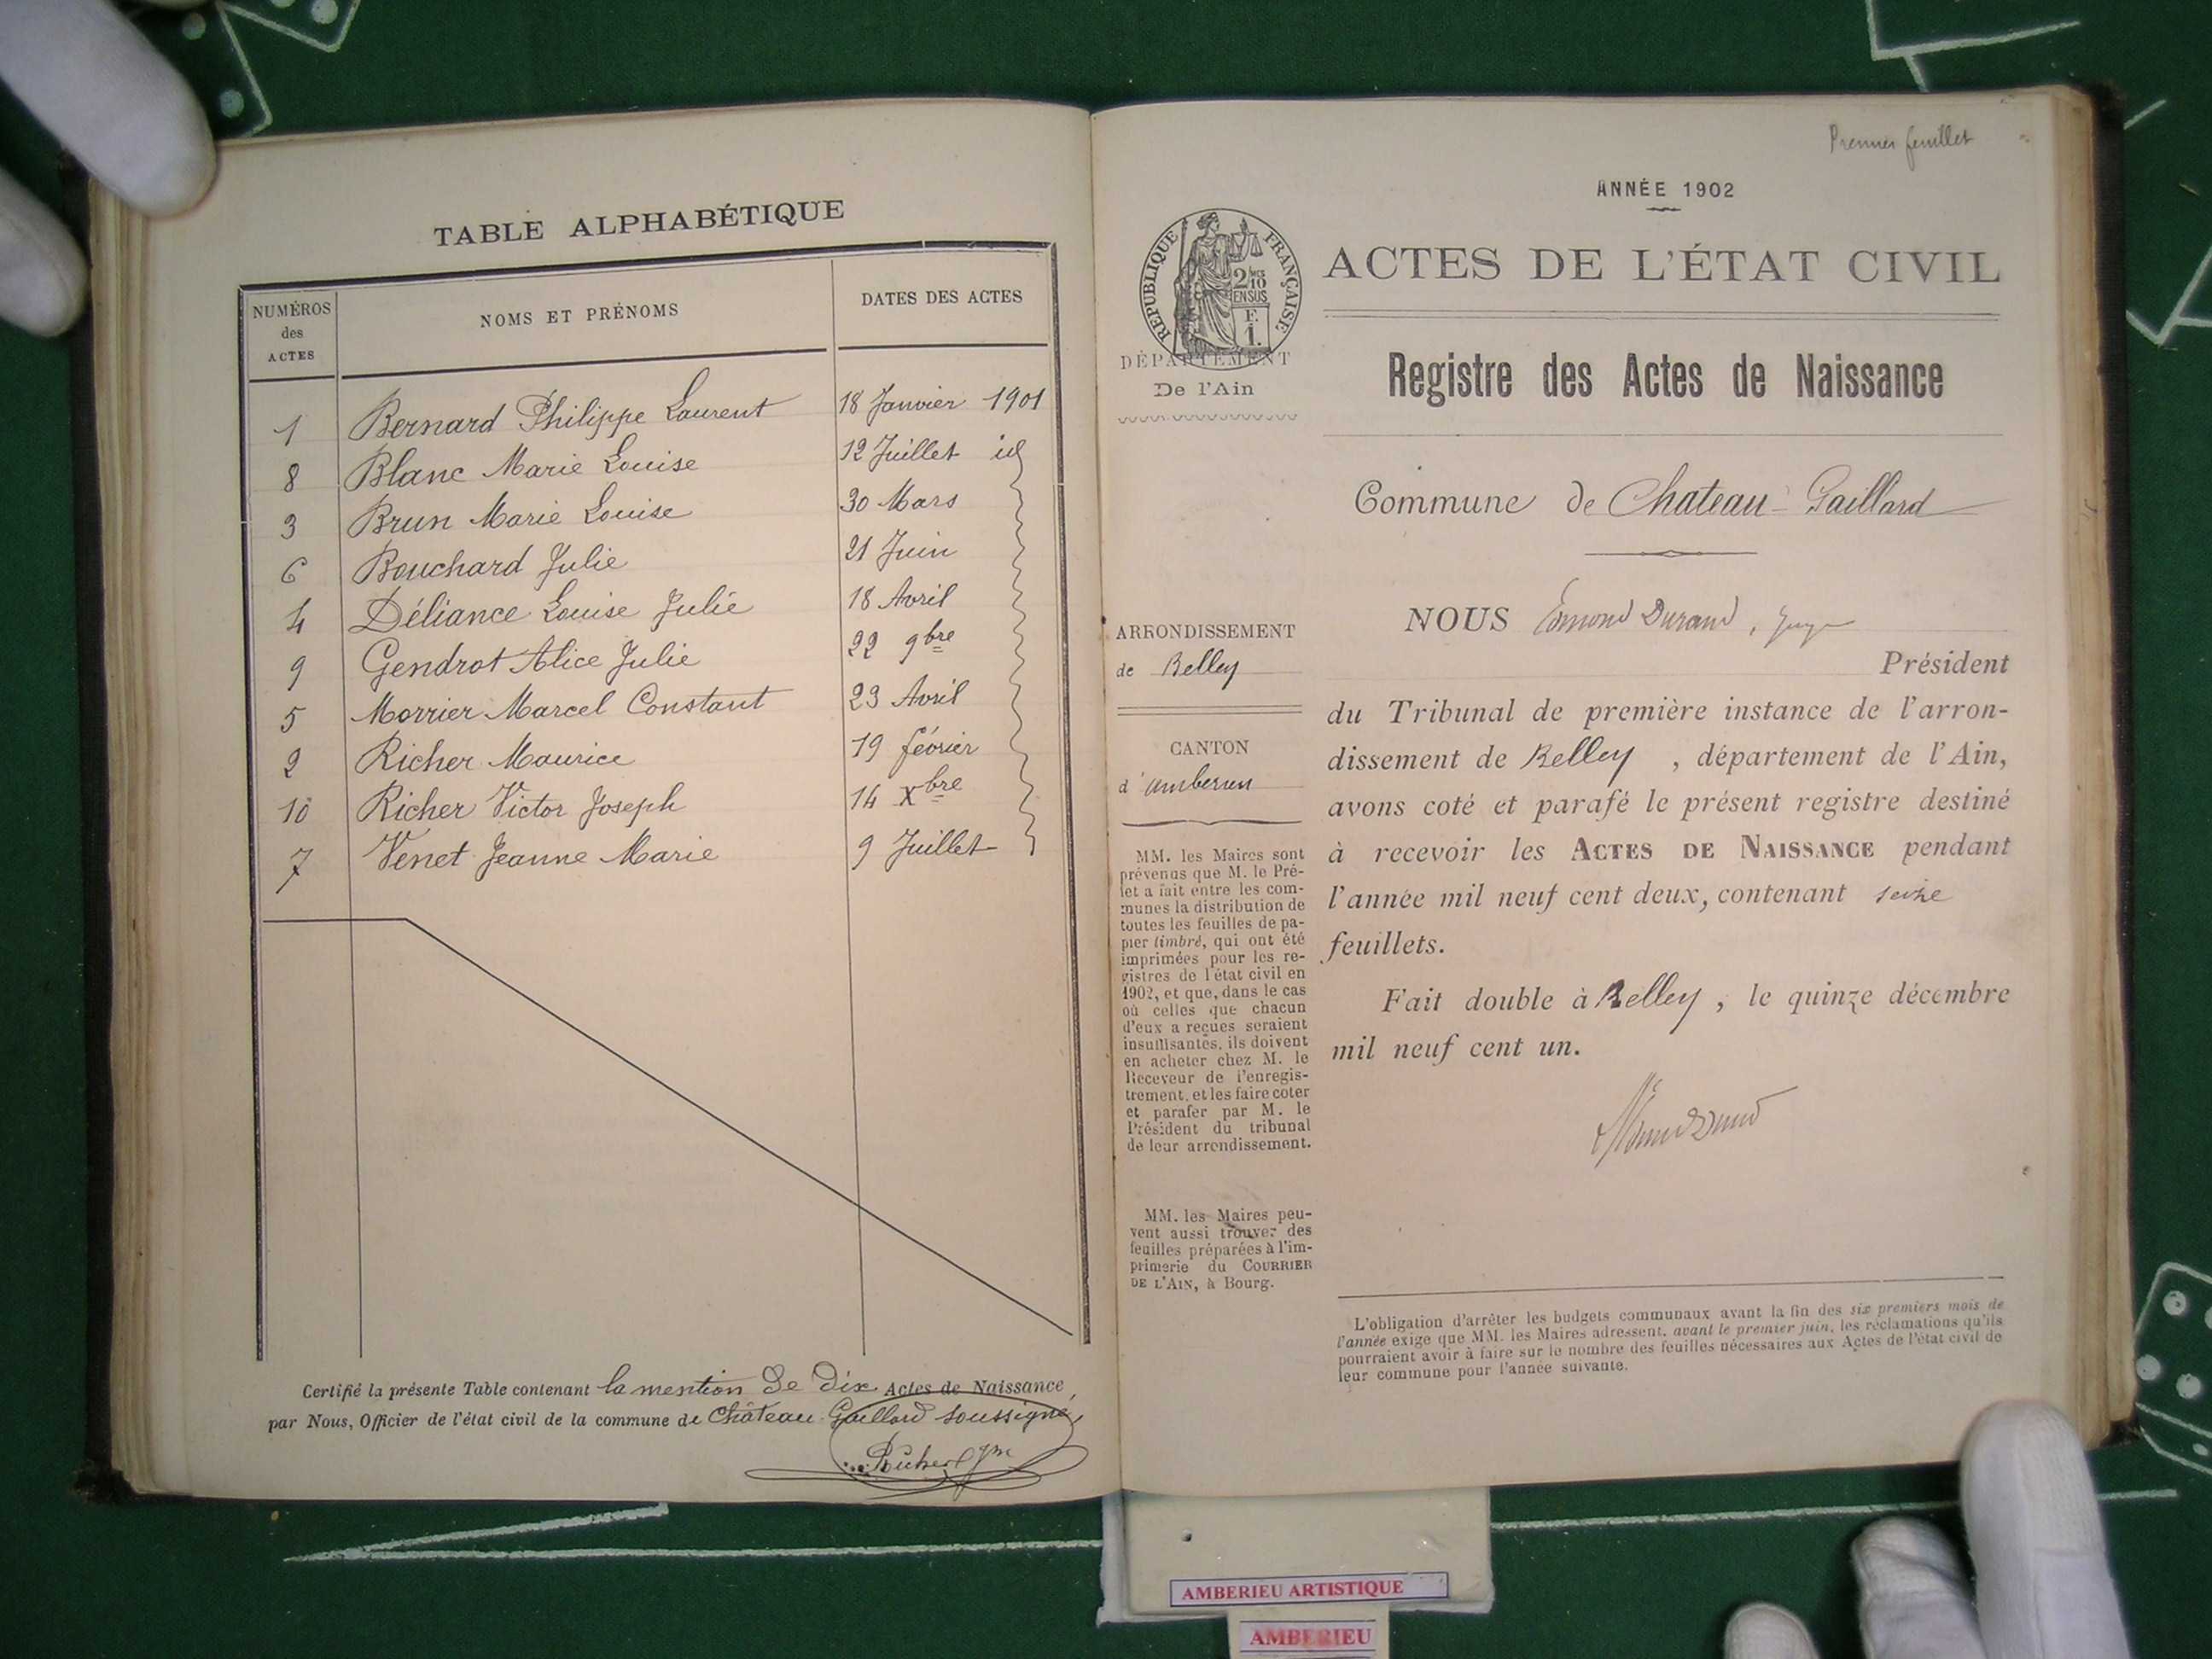 TABLE ALPHABÉTIQUE
NUMÉROS des ACTES
NOMS ET PRÉNOMS
DATES DES ACTES
1 Bernard Philippe Laurent 18 Janvier 1901
8 Blanc Marie Louise 12 Juillet id
3 Brun Marie Louise 30 Mars
6 Bouchard Julie 21 Juin
4 Déliance Louise Julie 18 Avril
9 Gendrot Alice Julie 22 9bre
5 Morrier Marcel Constant 23 Avril
2 Richer Maurice 19 février
10 Richer Victor Joseph 14 Xbre
7 Venet Jeanne Marie 9 Juillet
Certifié la présente Table contenant la mention de dix Actes de Naissance,
par Nous, Officier de l'état civil de la commune de Château-Gaillard soussigné,
Richer
Premier feuillet
ANNÉE 1902
RÉPUBLIQUE FRANÇAISE
2/10 EN SUS
F. 1.
ACTES DE L'ÉTAT CIVIL
DÉPARTEMENT
De l'Ain
Registre des Actes de Naissance
Commune de Chateau-Gaillard
ARRONDISSEMENT
de Belley
CANTON
MM. les Maires sont
prévenus que M. le Pré-
fet a fait entre les com-
munes la distribution de
toutes les feuilles de pa-
pier timbré, qui ont été
imprimées pour les re-
gistres de l'état civil en
1902, et que, dans le cas
où celles que chacun
d'eux a reçues seraient
insuffisantes, ils doivent
en acheter chez M. le
Receveur de l'enregis-
trement, et les faire coter
et parafer par M. le
Président du tribunal
de leur arrondissement.
MM. les Maires peu-
vent aussi trouver des
feuilles préparées à l'im-
primerie du COURRIER
DE L'AIN, à Bourg.
NOUS Edmond Durand, juge
Président
du Tribunal de première instance de l'arron-
dissement de Belley, département de l'Ain,
avons coté et parafé le présent registre destiné
à recevoir les ACTES DE NAISSANCE pendant
l'année mil neuf cent deux, contenant seize
feuillets.
Fait double à Belley, le quinze décembre
mil neuf cent un.
L'obligation d'arrêter les budgets communaux avant la fin des six premiers mois de
l'année exige que MM. les Maires adressent, avant le premier juin, les réclamations qu'ils
pourraient avoir à faire sur le nombre des feuilles nécessaires aux Actes de l'état civil de
leur commune pour l'année suivante.
AMBERIEU ARTISTIQUE
AMBERIEU